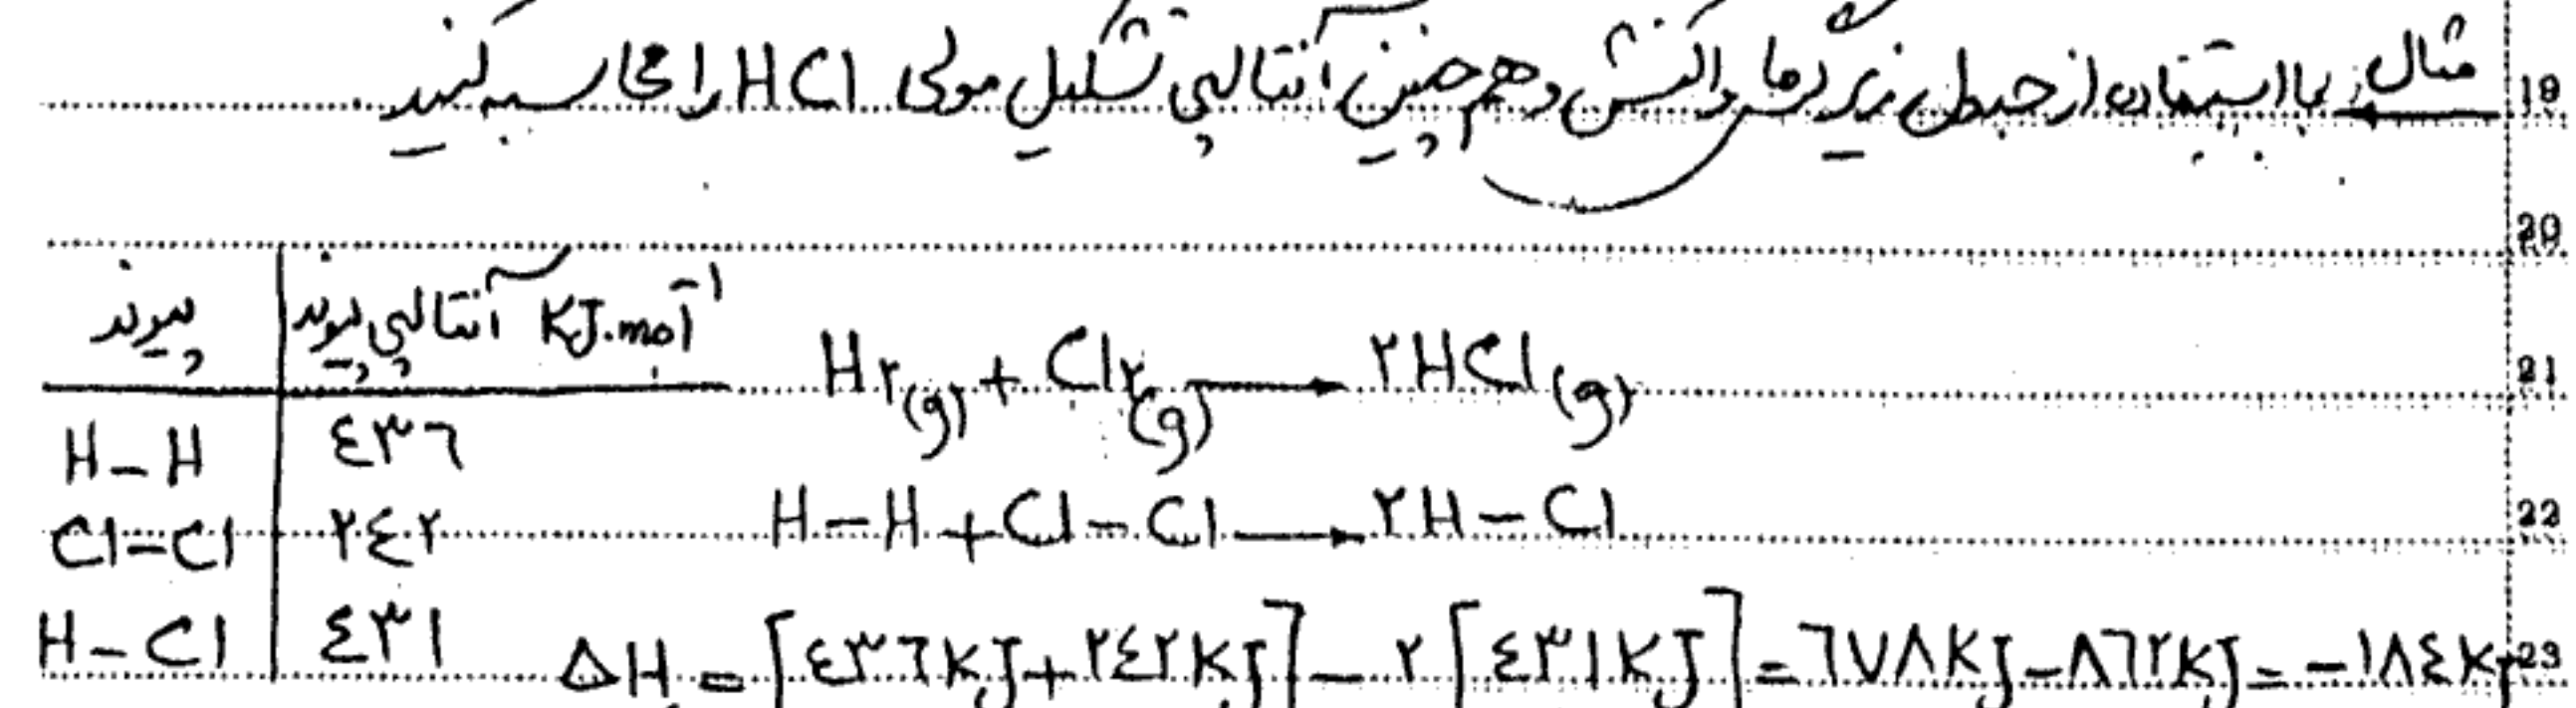 مثال با استفاده از جدول زیر گرمای واکنش و همچنین آنتالپی تشکیل مولی HCl را محاسبه کنید. 19
20
پیوند آنتالپی پیوند KJ.mol⁻¹ H۲(g) + Cl۲(g) → ۲HCl(g) 21
H-H ٤٣٦
Cl-Cl ٢٤٢ H-H + Cl-Cl → ٢H-Cl 22
H-Cl ٤٣١ ΔH = [٤٣٦KJ + ٢٤٢KJ] - ٢[٤٣١KJ] = ٦٧٨KJ - ٨٦٢KJ = -١٨٤KJ 23